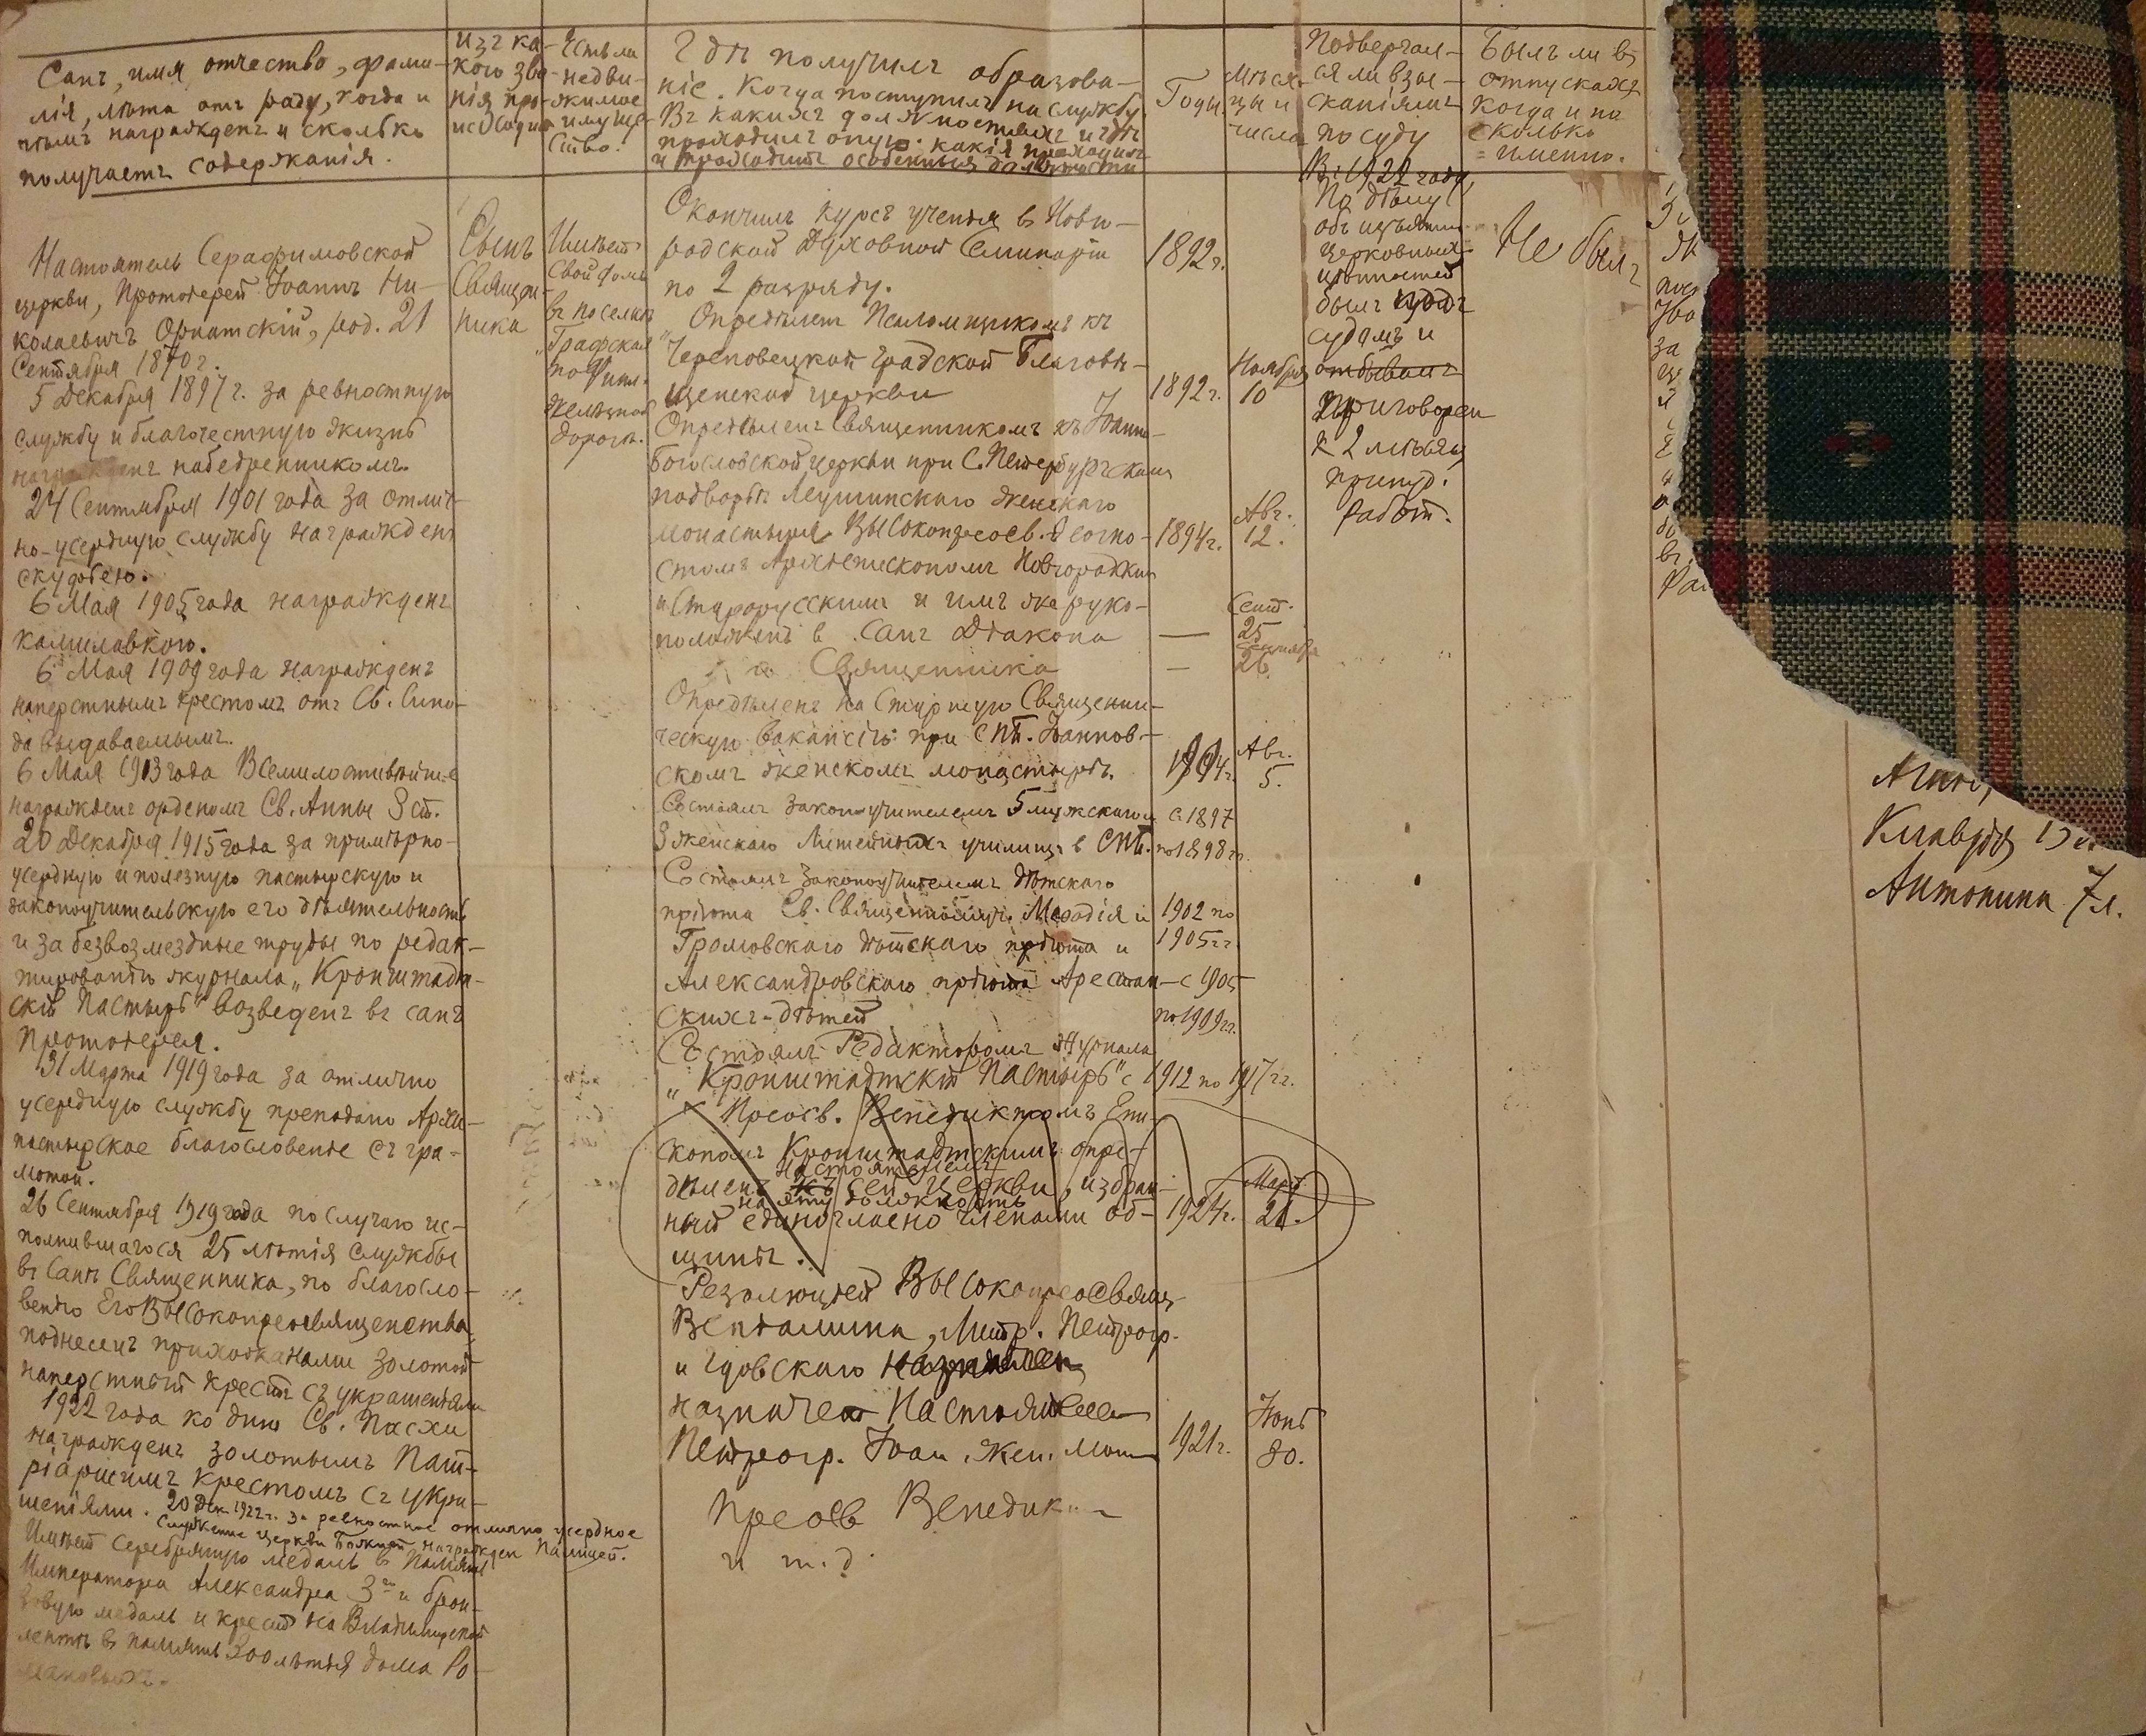 Санъ, имя, отчество, фами-
лія, лѣта отъ роду, когда и
чѣмъ награжденъ и сколько
получаетъ содержанія.
изъ ка-
кого зва-
нія про-
исходитъ
Есть ли
недви-
жимое
имуще-
ство.
Гдѣ получилъ образова-
ніе. Когда поступилъ на службу.
Въ какихъ должностяхъ и гдѣ
проходилъ оную. какія проходилъ
и проходитъ особенныя должности
Годы
Мѣся-
цы и
числа
Подвергал-
ся ли взы-
сканіямъ
по суду
Былъ ли въ
отпускахъ
когда и на
сколько
именно.
Настоятель Серафимовской
церкви, Протоіерей Іоаннъ Ни-
колаевичъ Орнатскій, род. 21
Сентября 1870 г.
5 Декабря 1897 г. за ревностную
службу и благочестную жизнь
награжденъ набедренникомъ.
24 Сентября 1901 года за отлич-
но-усердную службу награжденъ
скуфьею.
6 Мая 1905 года награжденъ
камилавкою.
6 Мая 1909 года награжденъ
наперстнымъ крестомъ отъ Св. Сино-
да выдаваемымъ.
6 Мая 1913 года Всемилостивѣйше
награжденъ орденомъ Св. Анны 3 ст.
20 Декабря 1915 года за примѣрно-
усердную и полезную пастырскую и
законоучительскую его дѣятельность
и за безвозмездные труды по редак-
тированію журнала „Кронштадт-
скій Пастырь" возведенъ въ санъ
Протоіерея.
31 Марта 1919 года за отлично
усердную службу преподано Архи-
пастырское благословеніе съ гра-
мотой.
26 Сентября 1919 года по случаю ис-
полнившагося 25 лѣтія службы
въ Санѣ Священника, по благосло-
венію Его Высокопреосвященства
поднесенъ прихожанами золотой
наперстный крестъ съ украшеніями
1922 года ко дню Св. Пасхи
награжденъ золотымъ Пат-
ріаршимъ крестомъ съ укра-
шеніями. 20 Дек. 1922 г. За ревностное отлично усердное
служение Церкви Божией награжден палицей.
Имѣетъ серебряную медаль в память
Императора Александра 3го и брон-
зовую медаль и крестъ на Владимирской
лентѣ в память 300 лѣтія дома Ро-
мановыхъ.
Сынъ
Священ-
ника
Имѣетъ
свой домъ
въ поселкѣ
„Графская"
по Финл.
желѣзной
дорогѣ.
Окончилъ курсъ ученія в Новго-
родской Духовной Семинаріи
по 2 разряду.
1892 г.
Опредѣленъ Псаломщикомъ къ
Череповецкой градской Благовѣ-
щенской церкви
1892 г.
Ноября
10
Опредѣленъ Священникомъ къ Іоанно-
Богословской церкви при С.Петербургскомъ
подворьѣ Леушинскаго женскаго
монастыря Высокопреосв. Ѳеогно-
стомъ Архіепископомъ Новгородскимъ
и Старорусскимъ и имъ же руко-
положенъ в Санъ Діакона
1894 г.
Авг.
12.
—
Сент.
25
" " Священника
—
Сентября
26.
Опредѣленъ на Старшую Священни-
ческую вакансію при СПб. Іоаннов-
скомъ женскомъ монастырѣ.
Авг.
5.
Состоялъ законоучителемъ 5 мужского и
3 женскаго Литейныхъ училищ в СПБ.
с 1897
по 1898 гг.
Состоялъ законоучителемъ дѣтскаго
пріюта Св. Священномуч. Меѳодія и
Громовскаго дѣтскаго пріюта и
1902 по
1905 гг.
Александровскаго пріюта Арестант-
скихъ-дѣтей
с 1905
по 1909 гг.
Состоялъ Редакторомъ журнала
„Кронштадтскій Пастырь" с 1912 по 1917 гг.
Преосв. Венедиктомъ Епи-
скопомъ Кронштадтскимъ опре-
дѣленъ къ настоятелемъ сей Церкви, избран-
на эту должность
ный единогласно членами об-
щины.
1924 г.
Март.
21.
Резолюціей Высокопреосвящ.
Веніамина, Митр. Петрогр.
и Гдовскаго
назначен Настоятелем
Петрогр. Іоан. Жен. Мон
1921 г.
Іюнь
30.
Преосв Венедик
и т. д.
Въ 1922 году
По дѣлу
объ изъятіи
церковныхъ
цѣнностей
былъ подъ
судомъ и
отбывалъ
приговорен
к 2 мѣсяц.
принуд.
работ.
Не былъ
за
Агнія,
Клавдія 13 л.
Антонина 7 л.